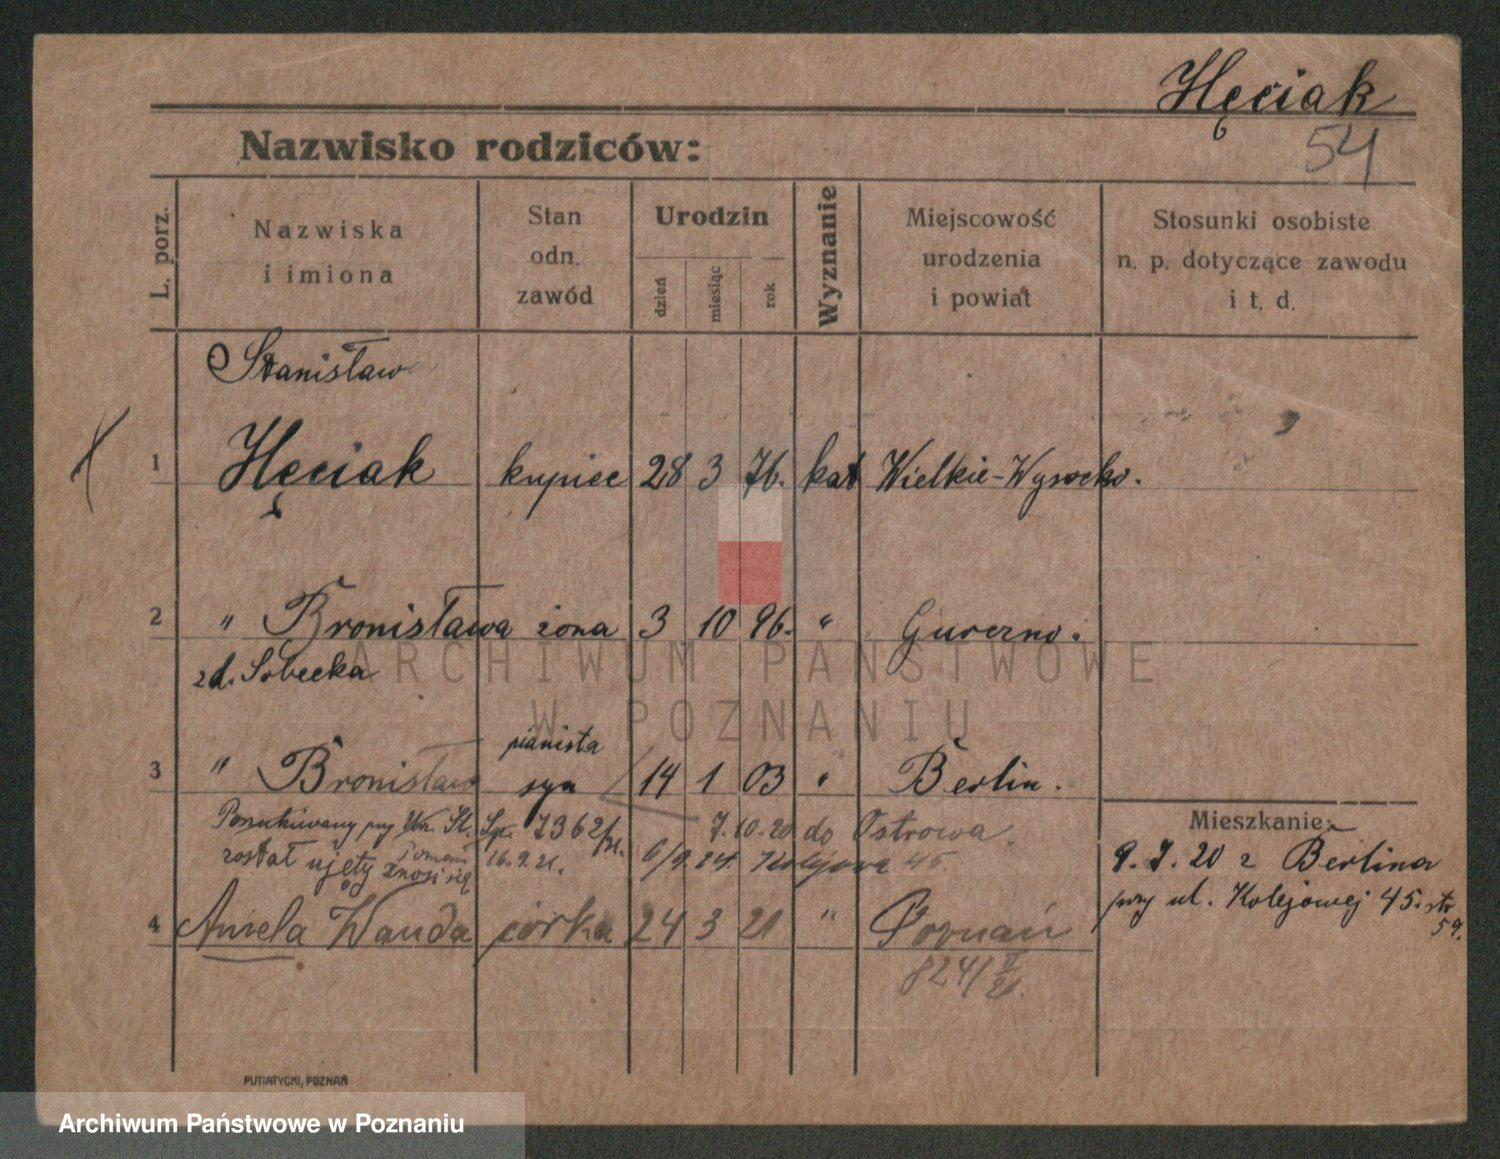 Hęciak
54
Nazwisko rodziców:
L. porz.
Nazwiska
i imiona
Stan
odn.
zawód
Urodzin
dzień
miesiąc
rok
Wyznanie
Miejscowość
urodzenia
i powiat
Stosunki osobiste
n. p. dotyczące zawodu
i t. d.
Stanisław
1 Hęciak kupiec 28 3 76. kat Wielkie-Wysocko.
2 " Bronisława żona 3 10 96. " Gurczno.
zd. Sobecka
ARCHIWUM PAŃSTWOWE
W POZNANIU
pianista
3 " Bronisław syn 14 1 03 " Berlin.
Poszukiwany prz St. 7362/21. 7.10.20 do Ostrowa
został ujęty znosi się 16.9.21. 6/9.24. Kolejowa 45.
Poznań
Mieszkanie:
9. 7. 20 z Berlina
przy ul. Kolejowej 45. str
59.
4 Aniela Wanda córka 24 3 21 " Poznań
824/II
21.
PUTIATYCKI, POZNAŃ
Archiwum Państwowe w Poznaniu